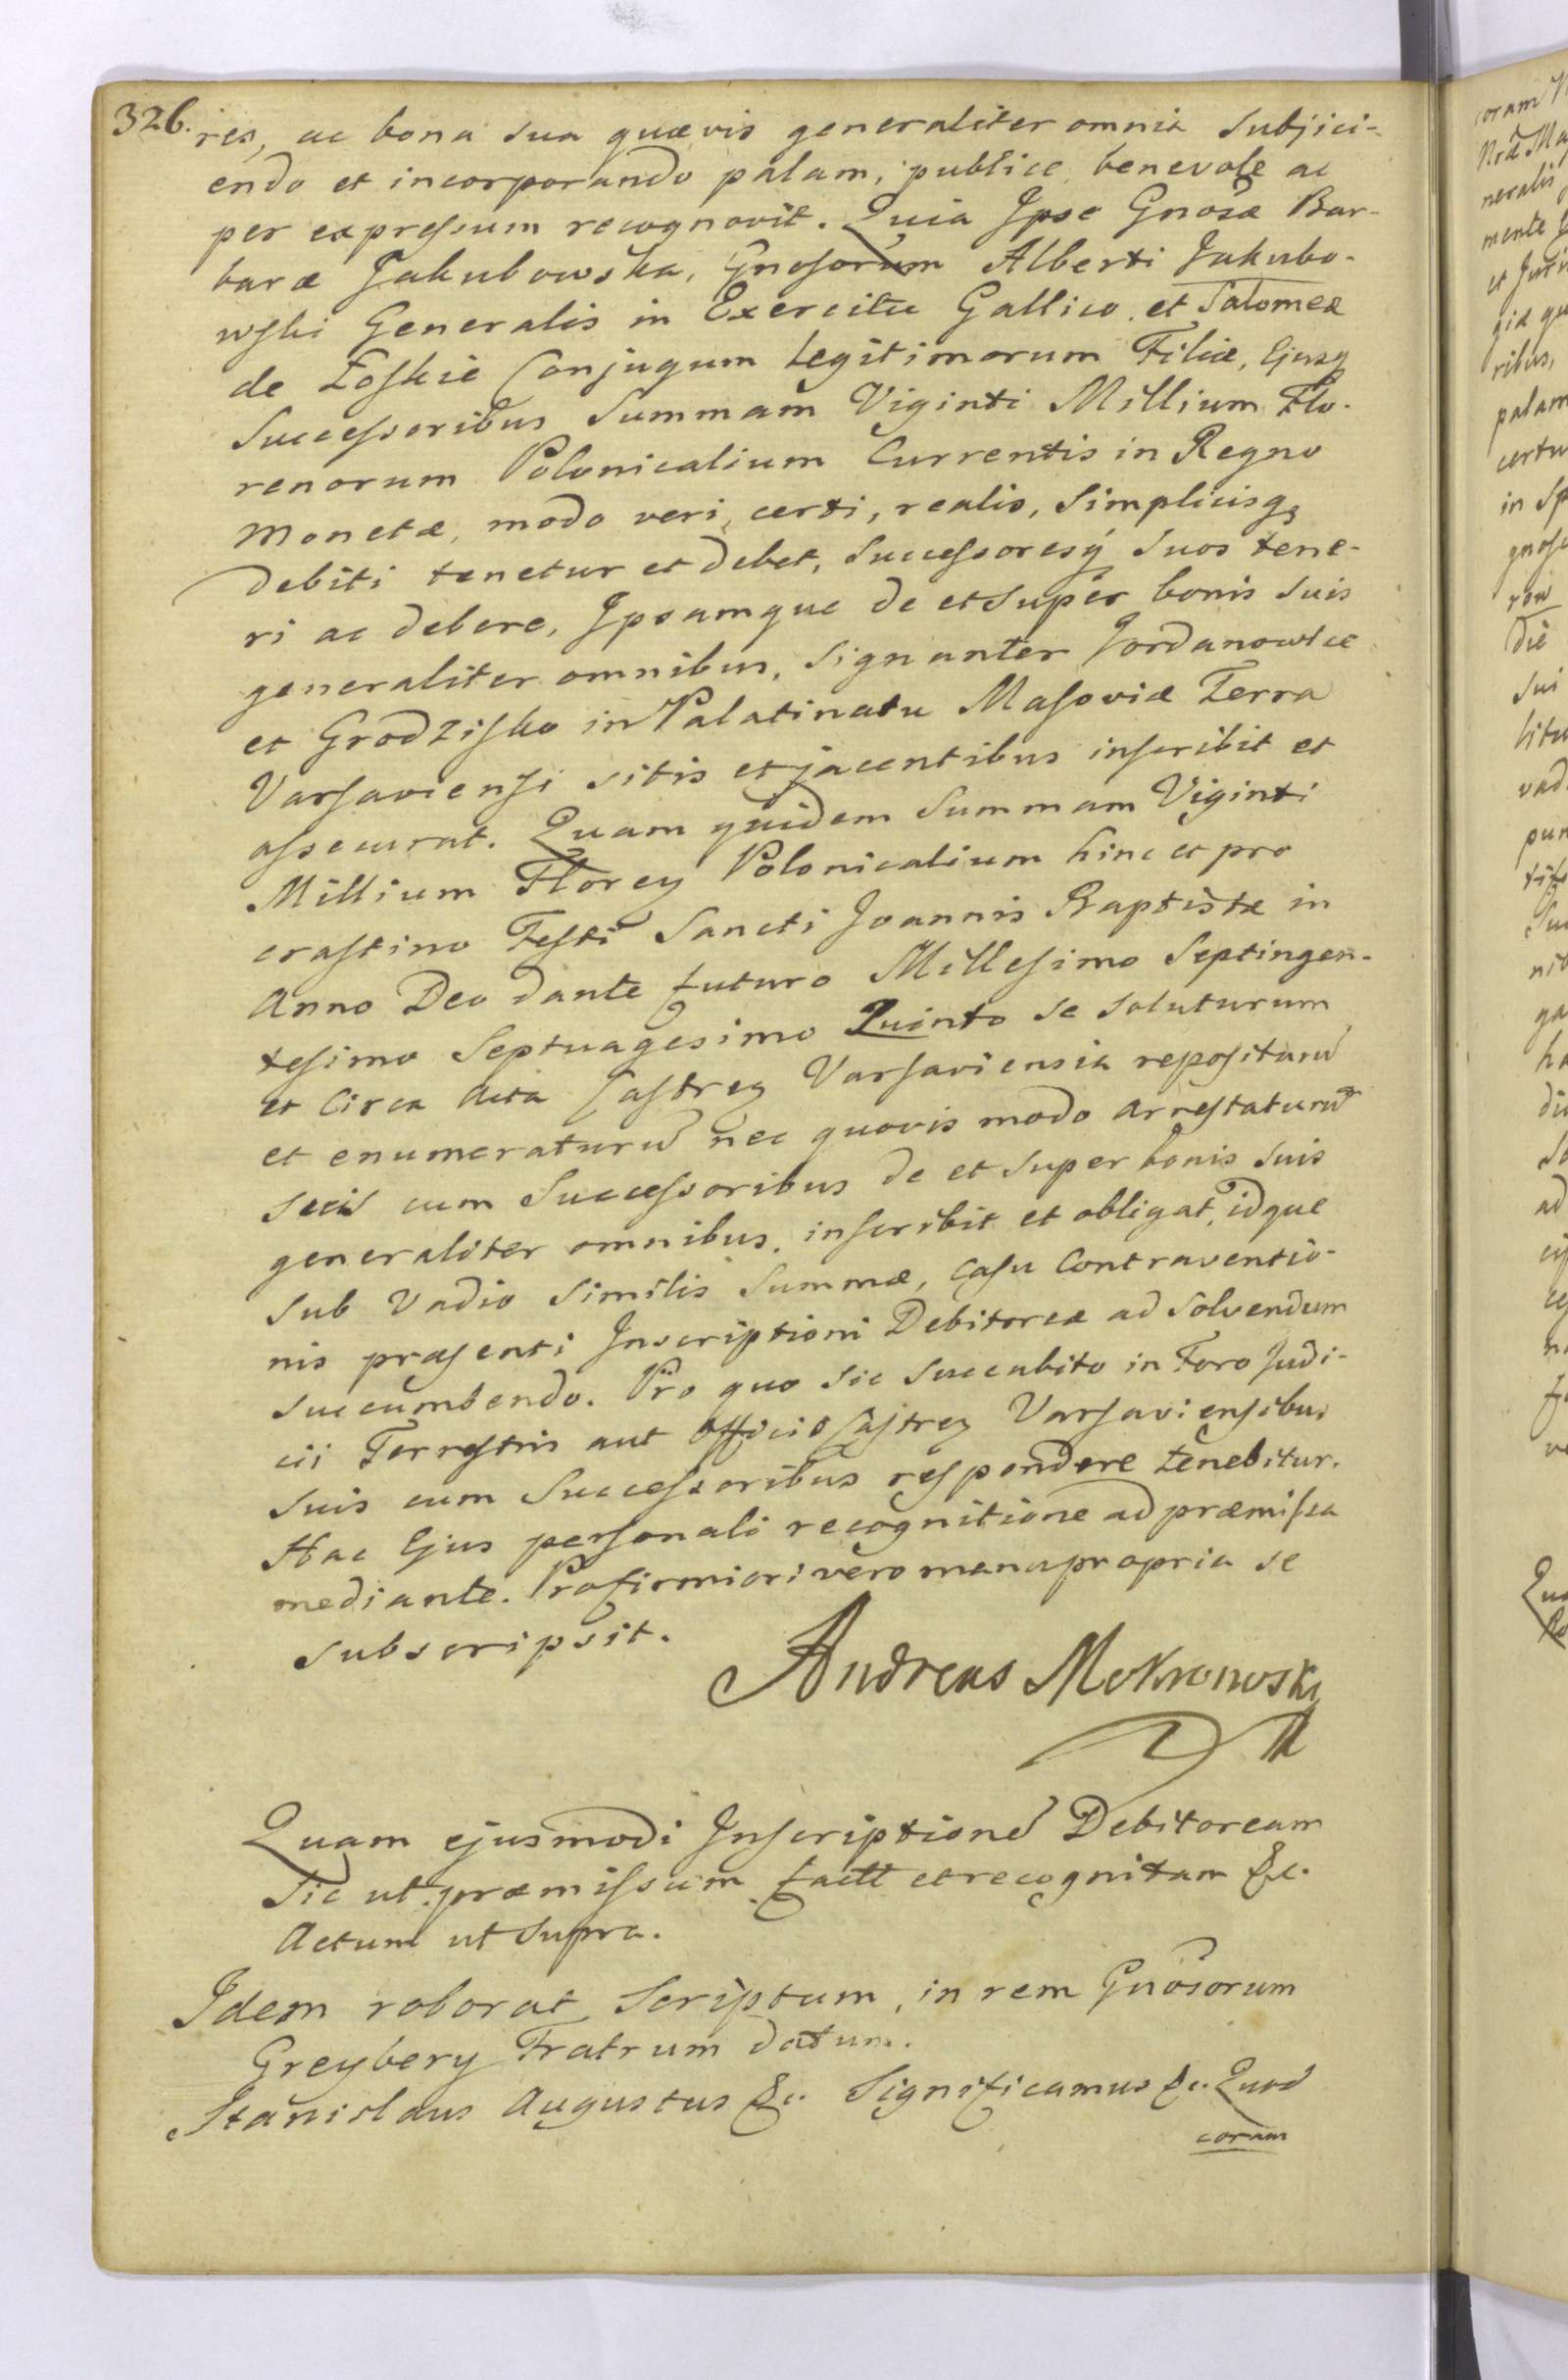 326. res, ac bona sua quævis generaliter omnia subjici-
endo et incorporando palam, publice benevole ac
per expressum recognovit. Quia Ipse Gnosæ Bar-
baræ Jakubowska, Gnosorum Alberti Jakubo-
wski Generalis in Exercitu Gallico, et Salomeæ
de Łoskie Conjugum legitimorum Filiæ, Ejusq
Successoribus Summam Viginti Millium Flo-
renorum Polonicalium Currentis in Regno
Monetæ, modo veri, certi, realis, Simplicisq
debiti tenetur et debet, Successoresq suos tene-
ri ac debere, Ipsamque de et super bonis suis
generaliter omnibus, signanter Jordanowice
et Grodzisko in Palatinatu Masoviæ Terra
Varsaviensi sitis et jacentibus inscribit et
assecurat. Quam quidem Summam Viginti
Millium Florey Polonicalium hinc et pro
crastino Festi Sancti Joannis Baptistæ in
Anno Deo dante futuro Millesimo Septingen-
tesimo Septuagesimo Quinto se soluturum
et Circa Acta Castrey Varsaviensia repositurũ
et enumeraturũ nec quovis modo arrestaturũ
secũ cum Successoribus de et super bonis suis
generaliter omnibus, inscribit et obligat, idque
sub Vadio similis Summæ, Casu Contraventio-
nis præsenti Inscriptioni Debitoreæ ad solvendum
succumbendo. Pro quo sic succubito in Foro Judi-
cii Terrestris aut Officio Castrey Varsaviensibus
suis cum Successoribus respondere tenebitur.
Hac Ejus personali recognitione ad præmissa
mediante. Pro firmiori vero manu propria se
subscripsit.
Andreas Mokronoski
Quam ejusmodi Inscriptionẽ Debitoream
Sic ut præmissum factt et recognitam &c.
Actum ut supra.
Idem roborat Scriptum, in rem Gnosorum
Greybery Fratrum datum.
Stanislaus Augustus &c. Significamus &c. Quod
coram